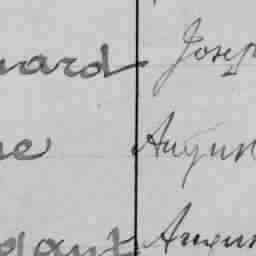 nard Josep
ne Augus
gant Augus